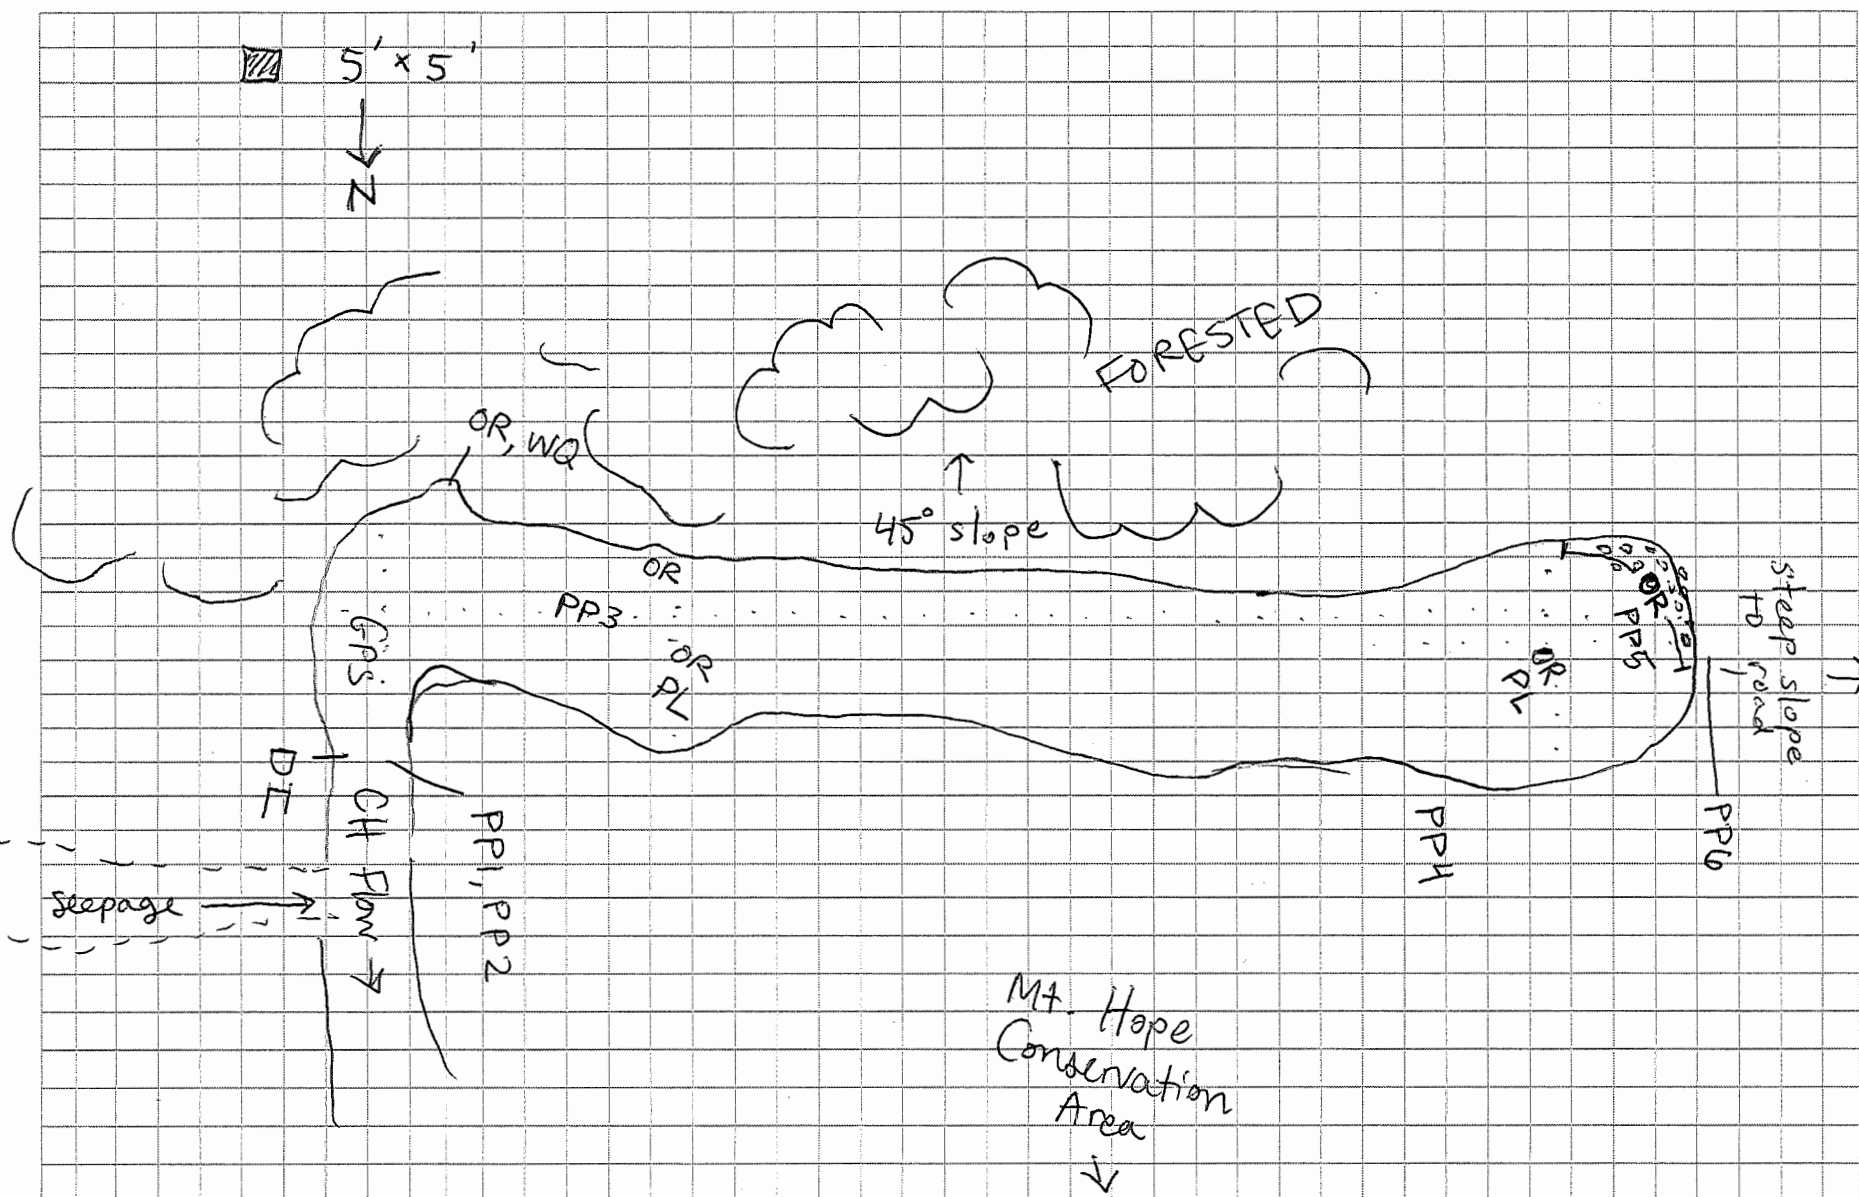 5' × 5'
N
FORESTED
OR, WQ
45° slope
OR
PP3
GPS
OR
PL
OR
PP5
OR
PL
Steep slope
to road
DE
CH Flow
PP1, PP2
PP4
PP6
seepage
Mt. Hope
Conservation
Area